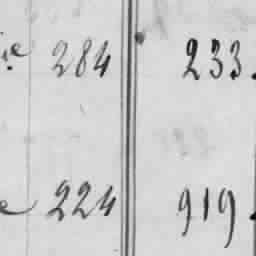 ie 284 233.
e 224 919.